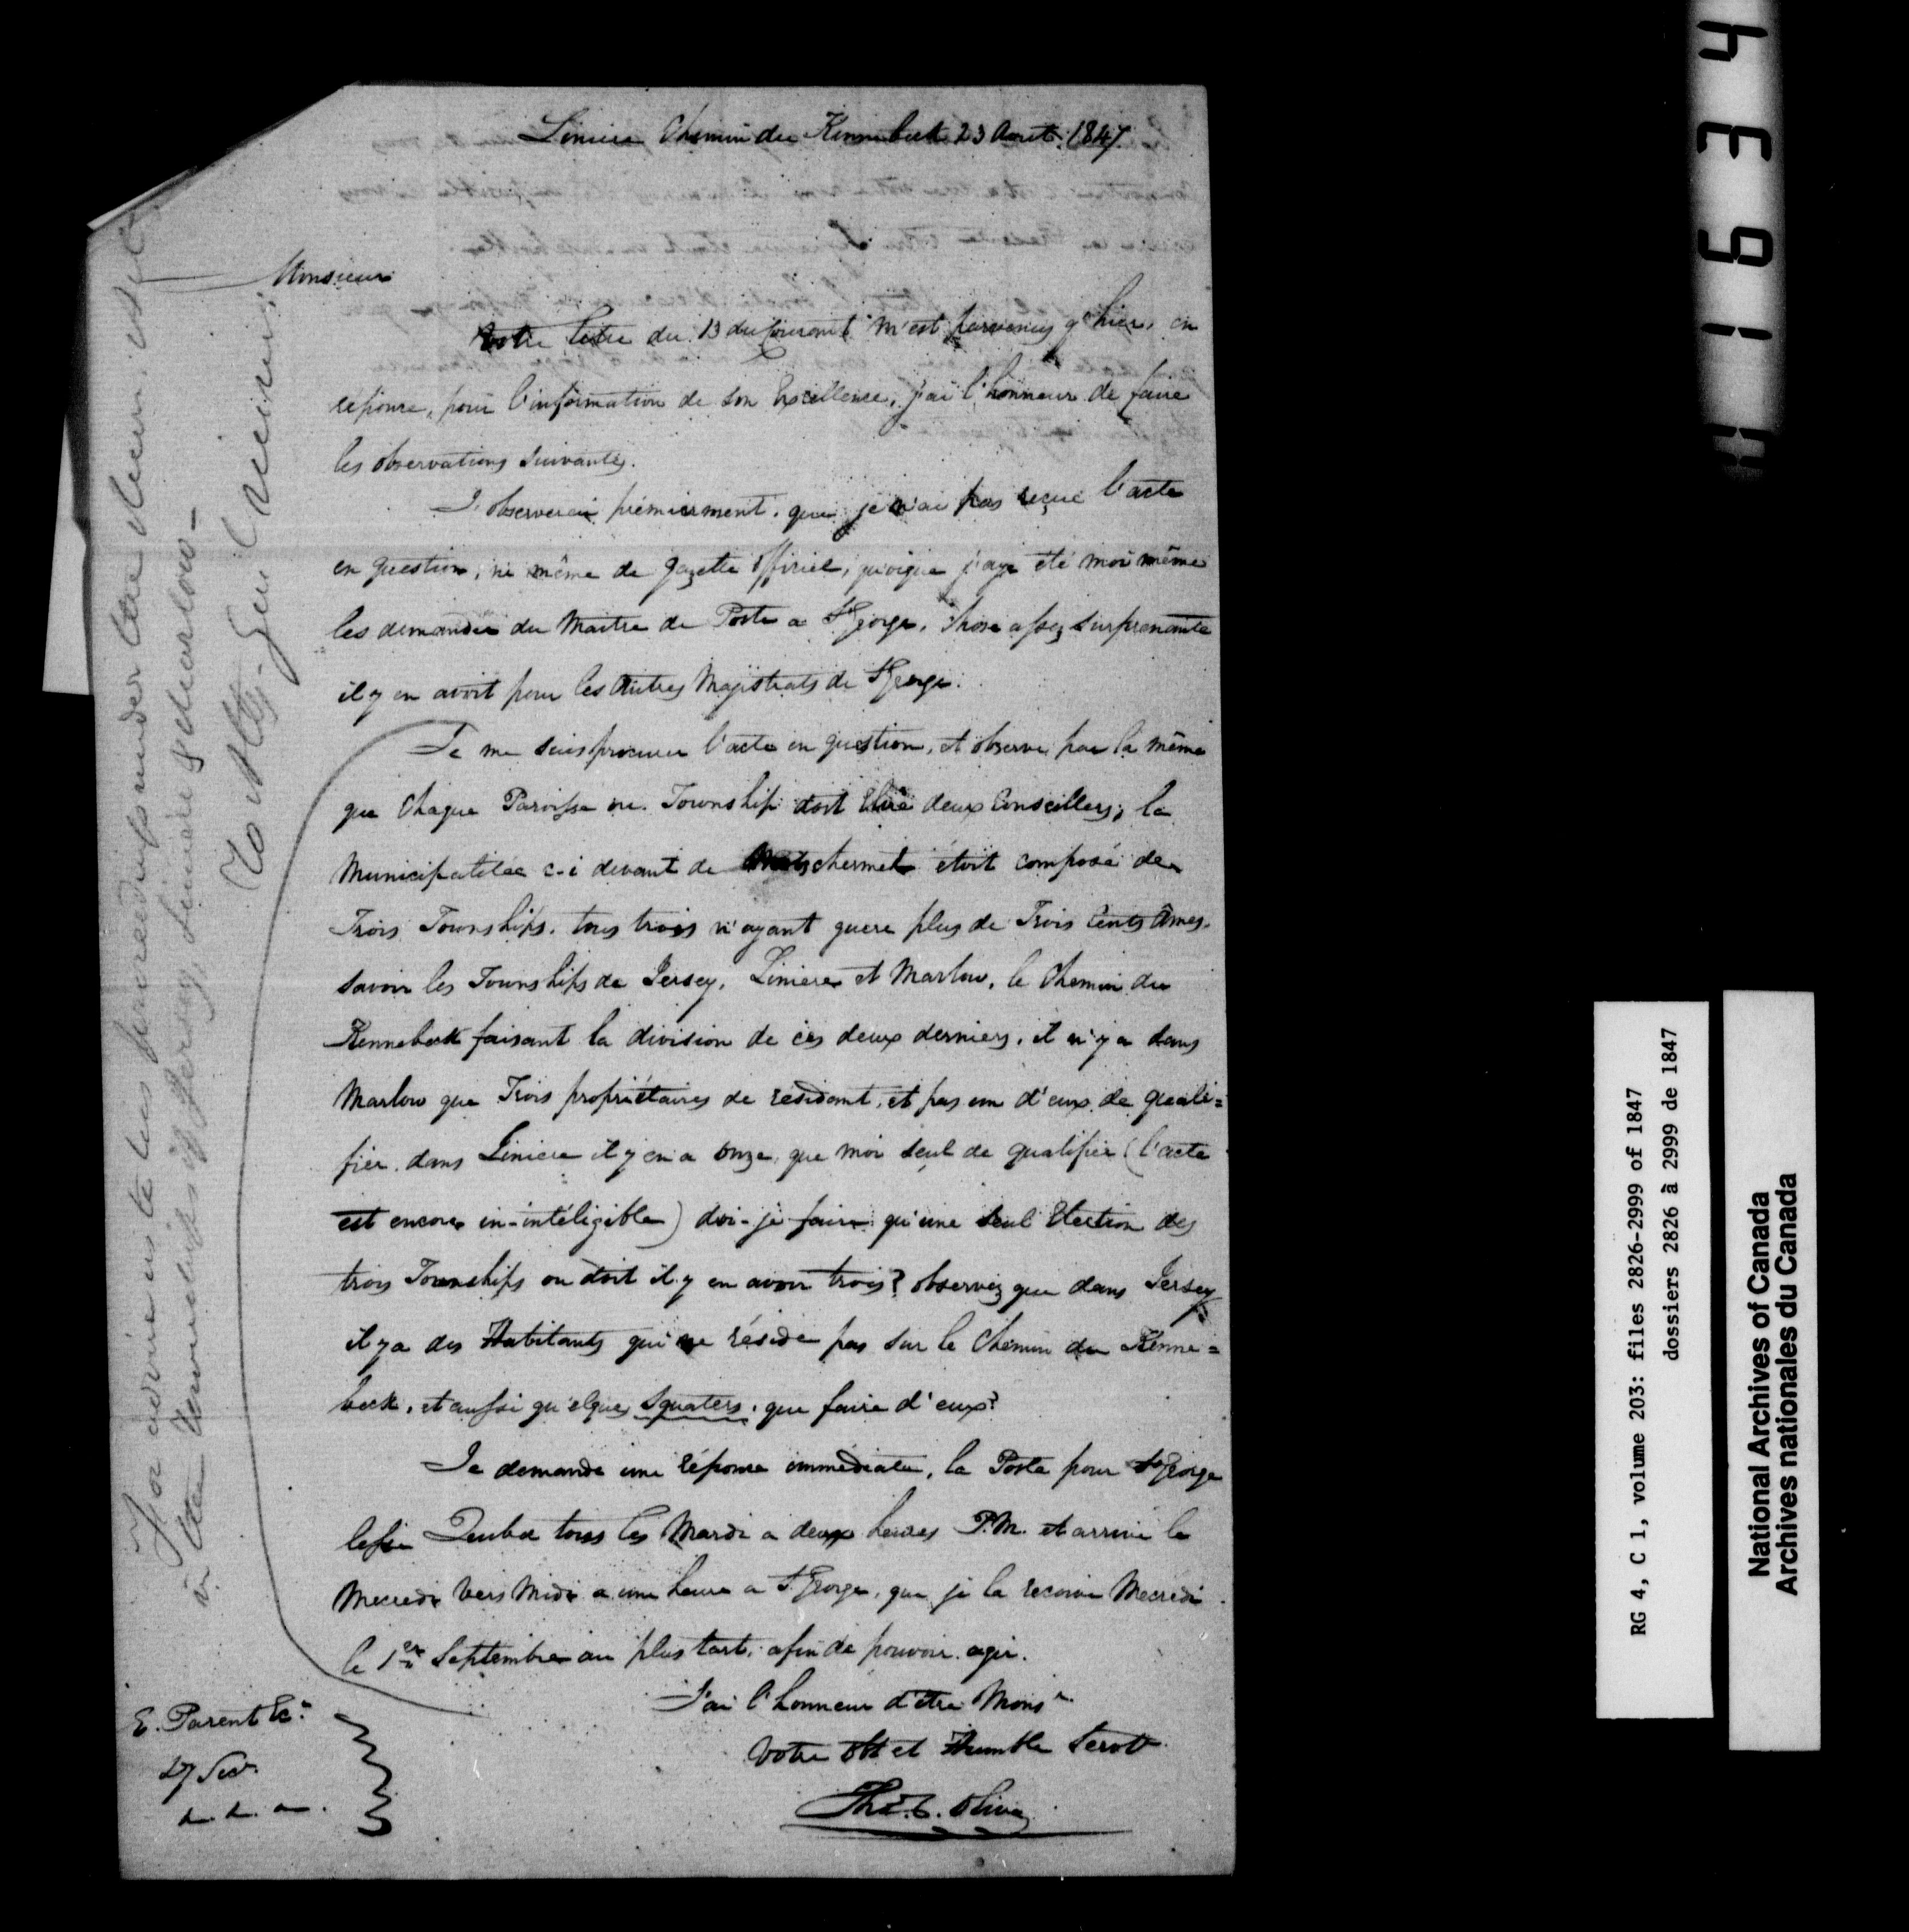 Liniere Chemin du Kennebeck 23 Août 1847.
Monsieur
Votre lettre du 13 du Courant m'est parvenus q'hier, en
reponse, pour l'information de Son Excellence, j'ai l'honneur de faire
les observations Suivantes.
J'observerai prémierment, que je n'ai pas reçue l'acte
en question, ni même de gazette Officiel, quoique j'aye été moi même
les demander du Maitre de Poste a St George, Chose assez Surprenante
il y en avoit pour les Autres Magistrats de St George.
Je me suis procurer l'acte en question, et observe par la même
que Chaque Paroisse ou Township doit Elire deux Conseillers; la
Municipalitée c-i devant de Metchermet étoit composé de
Trois Townships, tous trois n'ayant guere plus de Trois Cents Âmes.
Savoir les Townships de Jersey, Liniere et Marlow, le Chemin du
Kennebeck faisant la division de ces deux derniers, il n'y a dans
Marlow que Trois propriétaires de résidant, et pas un d'eux de quali=
fier, dans Liniere il y en a onze, que moi seul de qualifier (l'acte
est encore in-intéligible) doi-je faire qu'une Seul Election des
trois Townships ou doit il y en avoir trois? observez que dans Jersey
il y a des Habitants qui ne réside pas sur le Chemin du Kenne=
beck, et aussi qu'elques Squaters, que faire d'eux?
Je demande une réponse immédiate, la Poste pour St George
lesse Quebec tous les Mardi a deux heures P.M. et arrive le
Mecredi vers Midi a une heure a St George, que je la recoive Mecredi
le 1er Septembre au plus tart, afin de pouvoir agir.
J'ai l'honneur d'être Monsr
Votre Obt et Humble Servt
Ths. C. Oliva
E. Parent Ec.
Dy Sec.
&. &. &.
For advice as to his proceedings under late Muni.
in the Townships of Jersey, Linière & Marlow -
To Atty. Genl
11634
RG 4, C 1, volume 203: files 2826-2999 of 1847
dossiers 2826 à 2999 de 1847
National Archives of Canada
Archives nationales du Canada